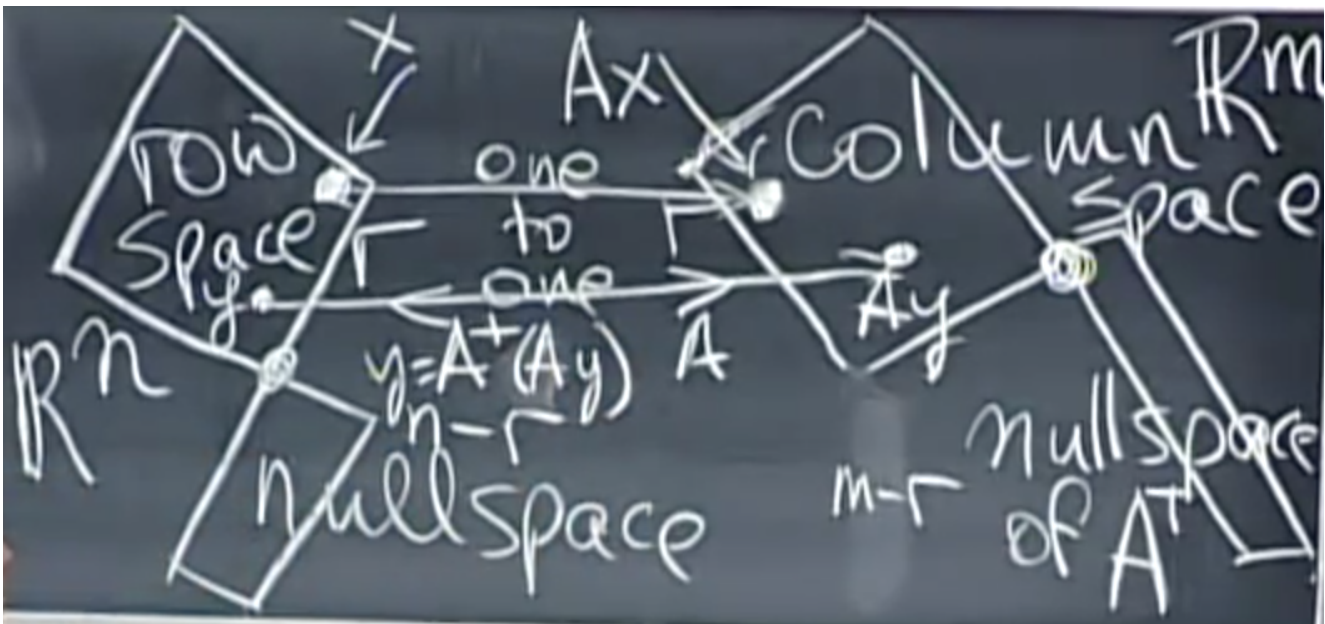 x
Ax
ℝᵐ
row
space
one
to
one
r
r
Column
space
y
Ay
ℝⁿ
y=A⁺(Ay)
A
n-r
nullspace
m-r
nullspace
of Aᵀ